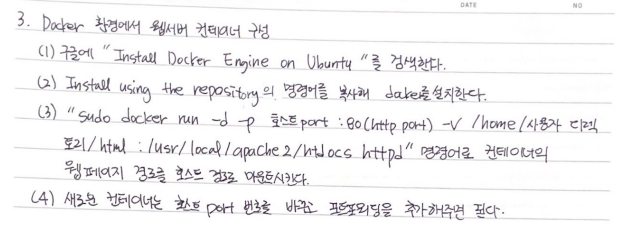 DATE NO
3. Docker 환경에서 웹서버 컨테이너 구성
(1) 구글에 "Install Docker Engine on Ubuntu"를 검색한다.
(2) Install using the repository의 명령어를 복사해 docker를 설치한다.
(3) "sudo docker run -d -p 호스트port :80(http port) -v /home/사용자 디렉
토리/html :/usr/local/apache2/htdocs httpd" 명령어로 컨테이너의
웹페이지 경로를 호스트 경로로 마운트시킨다.
(4) 새로운 컨테이너는 호스트 port 번호를 바꾸고 포트포워딩을 추가해주면 된다.